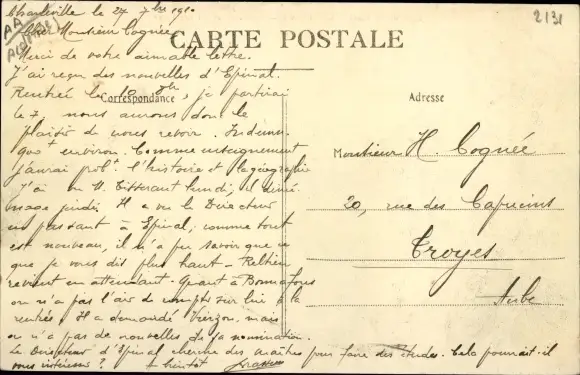 Charleville le 27 7bre 1910
Cher Monsieur Cognée,
CARTE POSTALE
Merci de votre aimable lettre.
J'ai reçu des nouvelles d'Epinal.
Rentrée le 8bre, je partirai
Correspondance
le 7, nous aurons donc le
plaisir de vous revoir. Indemn.
environ. Comme enseignement
j'aurai probt l'histoire et la géographie
J'ai vu M. Titterant lundi, il
jeudi, Il a vu le Directeur
en passant à Epinal, comme tout
est nouveau, il n'a pu savoir que ce
que je vous dis plus haut - Reltien
revient en attendant - Quant à Bonnafous
on n'a pas l'air de compter sur lui à la
rentrée, Il a demandé Vierzon, mais
on n'a pas de nouvelles de sa nomination.
Le Directeur d'Epinal cherche des maîtres pour faire des études. Cela pourrait-il
vous intéresser? A bientôt
Adresse
Monsieur H. Cognée
20, rue des Capucins
Troyes
Aube
2131